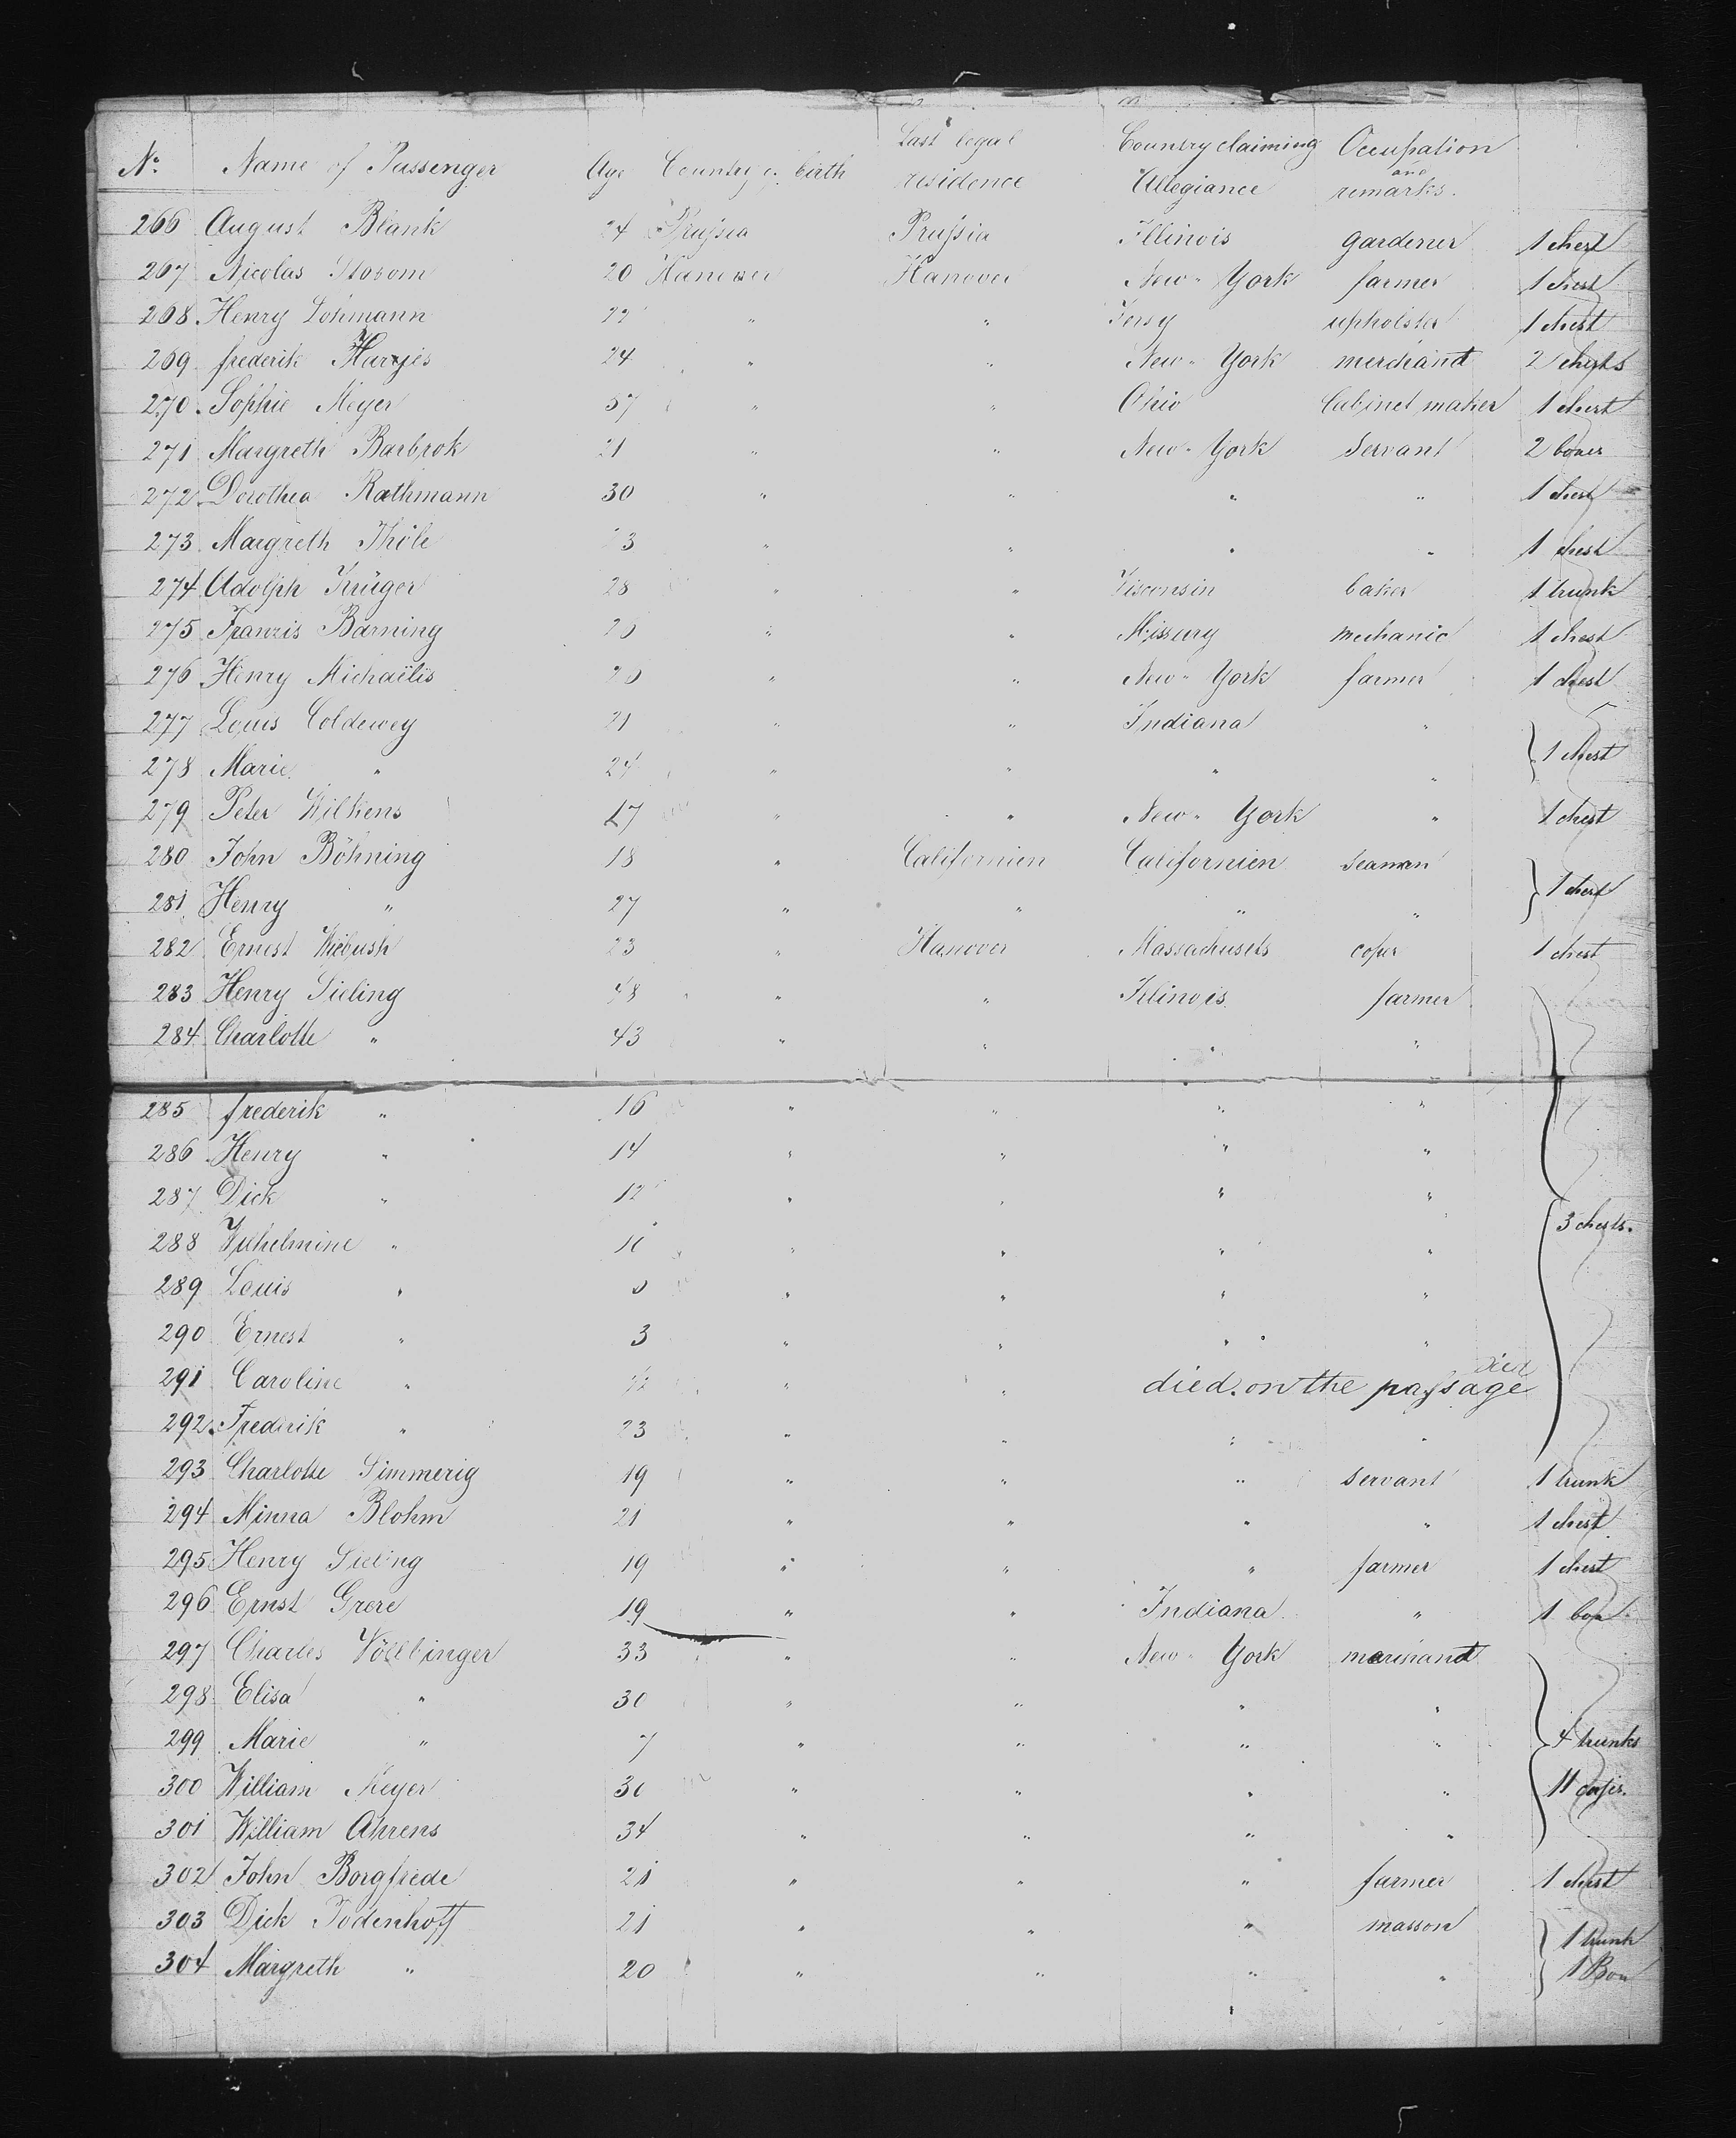 No. Name of Passenger Age Country of birth Last legal residence Country claiming Allegiance Occupation and remarks.
266 August Blank 24 Prussia Prussia Illinois gardener 1 chest
267 Nicolas 20 Hanover Hanover New-York farmer 1 chest
268 Henry Lohmann 22 " " Jersy upholster 1 chest
269 frederik Harjes 24 " " New-York merchand 2 chests
270 Sophie Meyer 57 " " Ohio Cabinet maker 1 chest
271 Margreth Barbrok 21 " " New-York Servant 2 boxes
272 Dorothea Rathmann 30 " " " " 1 chest
273 Margreth Thöle " " " " 1 chest
274 Adolph Krüger 28 " " Visconsin baker 1 trunk
275 Francis Barning 20 " " Missury mechanic 1 chest
276 Henry Michaëlis 20 " " New-York farmer 1 chest
277 Louis Coldewey 21 " " Indiana " 1 chest
278 Marie " 24 " " " "
279 Peter Wilkens 17 " " New-York " 1 chest
280 John Böhning 18 " Californien Californien Seaman 1 chest
281 Henry " 27 " " " "
282 Ernest Wiebush 23 " Hanover Massachusets coper 1 chest
283 Henry Sieling 48 " " Illinois farmer
284 Charlotte " 43 " " " "
285 frederik " 16 " " " "
286 Henry " 14 " " " "
287 Dick " 12 " " " "
3 chests.
288 Wilhelmine " 10 " " " "
289 Louis " " " " "
290 Ernest " 3 " " " "
291 Caroline " " " died on the passage died
292 Frederik " 23 " " " "
293 Charlotte Simmerig 19 " " " Servant 1 trunk
294 Minna Blohm 21 " " " " 1 chest
295 Henry Sieling 19 " " " farmer 1 chest
296 Ernst Grere 19 " " Indiana " 1 box
297 Charles Völlbinger 33 " " New-York merchand
298 Elisa " 30 " " " "
299 Marie " 7 " " " " 4 trunks
300 William Meyer 30 " " " " 11
301 William Ahrens 34 " " " "
302 John Borgfrede 21 " " " farmer 1 chest
303 Dick Todenhoff 21 " " " masson 1 trunk
304 Margreth " 20 " " " " 1 Box